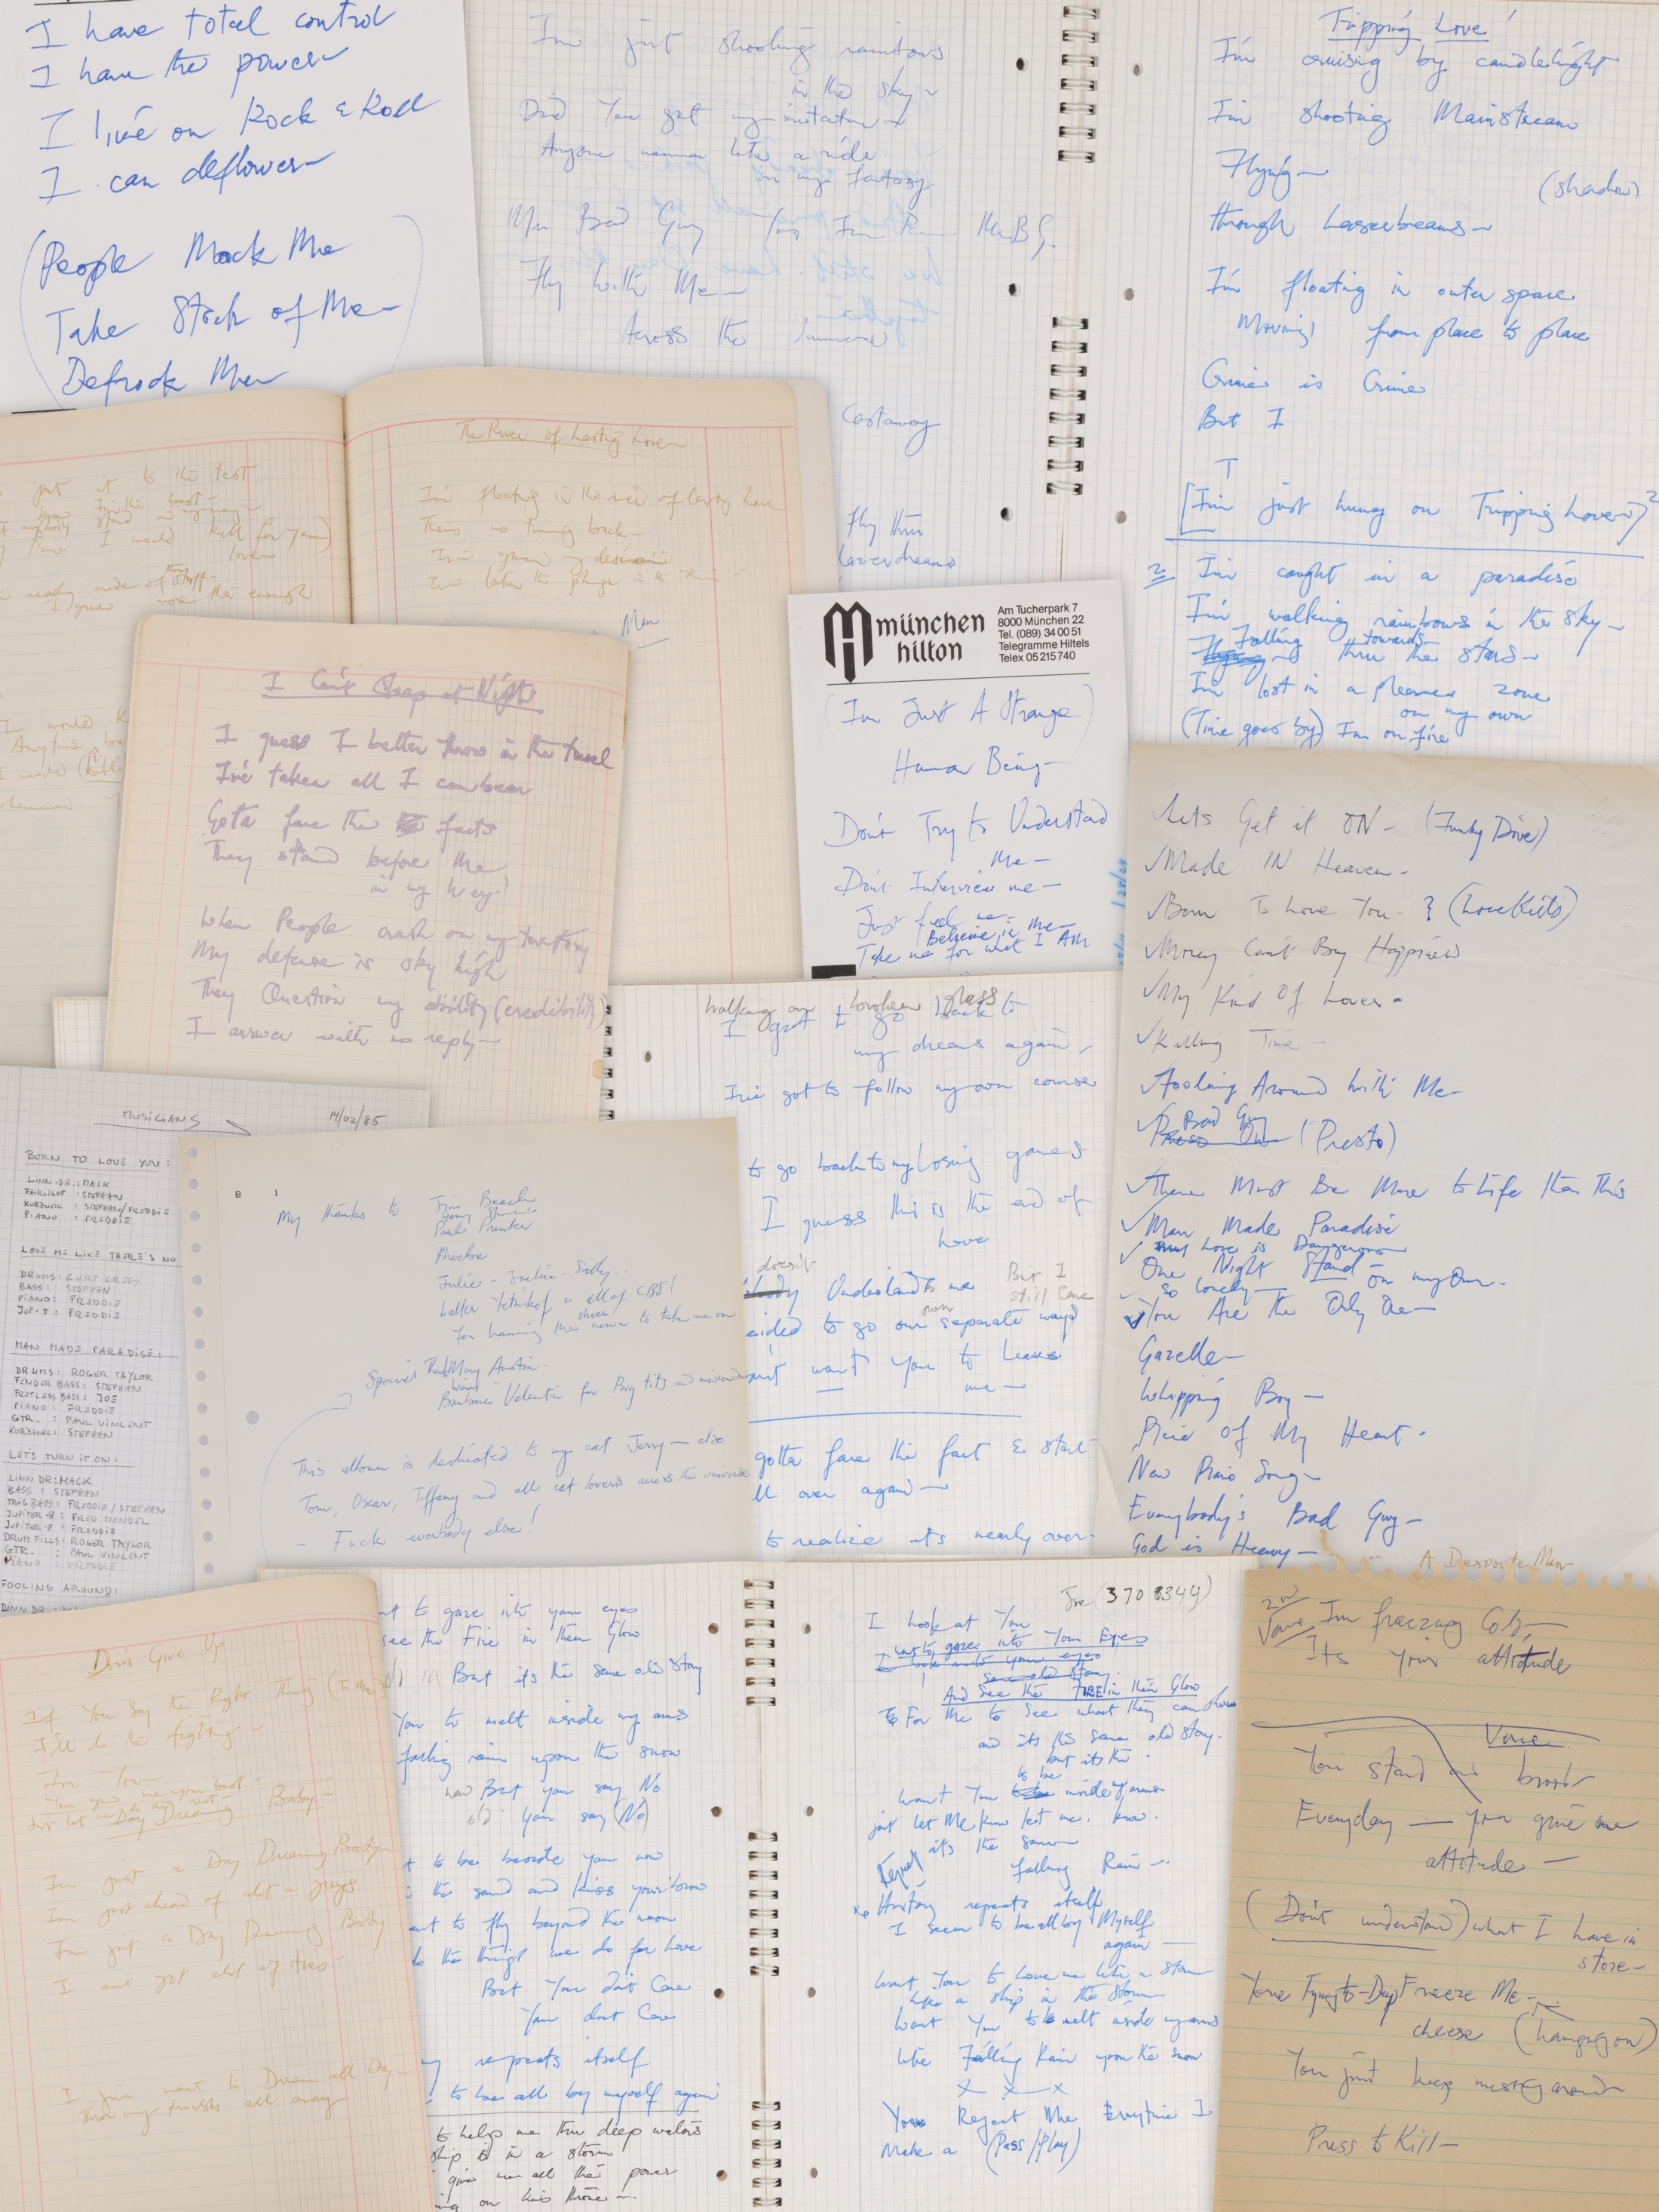 I have total control
I have the power
I live on Rock & Roll
I can deflower
(People Mock Me
Take Stock of Me
Defrock Me
I'm just shooting rainbows
in the sky
Did You get my invitation
Anyone wanna take a ride
in my fantasy
Mr Bad Guy Yes I'm Mr B G.
Fly With Me
Across the
Castaway
fly thru
laserdreams
Tripping Love
I'm cruising by candlelight
I'm shooting Mainstream
Flying
(shadow)
through Laserbeams
I'm floating in outer space
Moving from place to place
Crime is Crime
But I
[I'm just hung on Tripping Love] 2
2
I'm caught in a paradise
I'm walking rainbows in the sky
Falling towards
thru the stars
I'm lost in a pleasure zone
on my own
(Time goes by) I'm on fire
put it to the test
I would kill for your
love
ready made of stuff
I guess the enough
I would
The River of Lasting Love
I'm floating in the river of lasting love
There's no turning back
I've taken the plunge in the
Man
I Can't Sleep at Night
I guess I better throw in the towel
I've taken all I can bear
Gotta face the facts
They stand before Me
in my Way
When People crash on my territory
My defense is sky high
They Question my ability (credibility)
I answer with no reply
münchen
hilton
Am Tucherpark 7
8000 München 22
Tel. (089) 34 00 51
Telegramme Hiltels
Telex 05 215 740
(Im Just A Strange)
Human Being
Don't Try to Understand
Me
Don't Interview me
Just feel me
Believe in Me
Take me for what I Am
Lets Get it ON - (Funky Drive)
Made IN Heaven
Born To Love You - } (Love Kills)
Money Can't Buy Happiness
My Kind Of Lover
Killing Time
Fooling Around With Me
Bad Guy
Press On (Presto)
There Must Be More to Life than This
Man Made Paradise
Love is Dangerous
One Night Stand - on my Own
so lonely
You Are the Only One
Gazelle
Whipping Boy
Piece Of My Heart
New Piano Song
Everybody's Bad Guy
God is Heavy
walking on broken glass
I got to go back to
my dreams again
I've got to follow my own course
to go back to my losing games
I guess this is the end of
love
doesn't
Understands me
But I
still Care
own
cided to go our separate ways
want You to Leave
me
gotta face the fact & start
ll over again
to realize it's nearly over
MUSICIANS
14/02/85
BORN TO LOVE YOU:
LINN-DR.: MACK
FAIRLIGHT: STEPHAN
KURZWEIL: STEPHAN/FREDDIE
PIANO: FREDDIE
LOVE ME LIKE THERE'S NO
DRUMS: CURT CRESS
BASS: STEPHAN
PIANO: FREDDIE
JUP-8: FREDDIE
MAN MADE PARADISE:
DRUMS: ROGER TAYLOR
FENDER BASS: STEPHAN
FRETLESS BASS: JOE
PIANO: FREDDIE
GTR.: PAUL VINCENT
KURZWEIL: STEPHAN
LET'S TURN IT ON:
LINN DR: MACK
BASS: STEPHAN
BASS: FREDDIE/STEPHAN
JUPITER-8: FRED MANDEL
JUPITER-8: FREDDIE
DRUM FILLS: ROGER TAYLOR
GTR.: PAUL VINCENT
PIANO: FREDDIE
FOOLING AROUND:
LINN DR
B 1
My thanks to Jim Beach
Paul Prenter
Phoebe
Julie - Jackie - Sally...
Walter Yetnikof & all of CBS!
for having the sheer nerve to take me on
Special Thanks Mary Austin
Barbara Valentin for Big tits and misconduct
This album is dedicated to my cat Jerry - also
Tom, Oscar, Tiffany and all cat lovers across the universe
- Fuck everybody else!
Dont Give Up
If You Say the Right Thing
I'll do the fighting
For You
You give me your best
Day Dreaming Baby
I'm just a Day Dreaming Booby
I'm just ahead of alot a guys
I'm just a Day Dreaming Booby
I ain't got alot of ties
I just want to Dream all Day
Throw my all away
nt to gaze into your eyes
see the Fire in their Glow
But its the same old story
You to melt inside my arms
falling rain upon the snow
But you say No
you say (No)
t to be beside you now
the sand and kiss your brow
ant to fly beyond the moon
do the things we do for love
But You don't Care
You don't Care
repeats itself
to be all by myself again
to help me thru deep waters
ship is in a storm
give me all the power
on his throne
Joe (370 8344)
I Look at You
want to gaze into Your Eyes
I look into your eyes
same old story
And See the FIRE in their Glow
For Me to See what they can show
and its the same old story.
but its the
to be
Want You inside my arms
just let Me know let me know.
its the same
Repeat falling Rain
History repeats itself
I seem to be all by Myself
again
Want You to Love me like a storm
like a ship in the storm
Want You to melt inside my arms
like Falling Rain upon the snow
X X X
You Reject Me Everytime I
Make a (Pass/Play)
A Desperate Man
2nd
Verse I'm freezing Cold
Its your attitude
Verse
You stand and brood
Everyday - you give me
attitude
(Don't understand) what I have in
store
You're Trying to Deep Freeze Me
cheese (hanging on)
You just keep messing around
Press to Kill